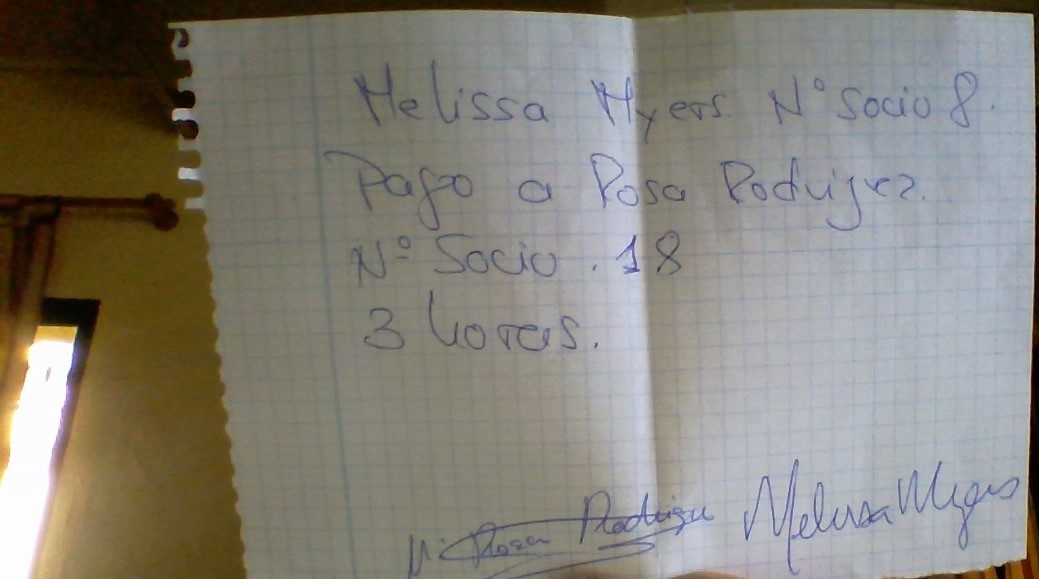 Melissa Myers. Nº Socio 8.
Pago a Rosa Rodriguez.
Nº Socio . 18
3 horas.
Mª Rosa Rodriguez Melissa Myers